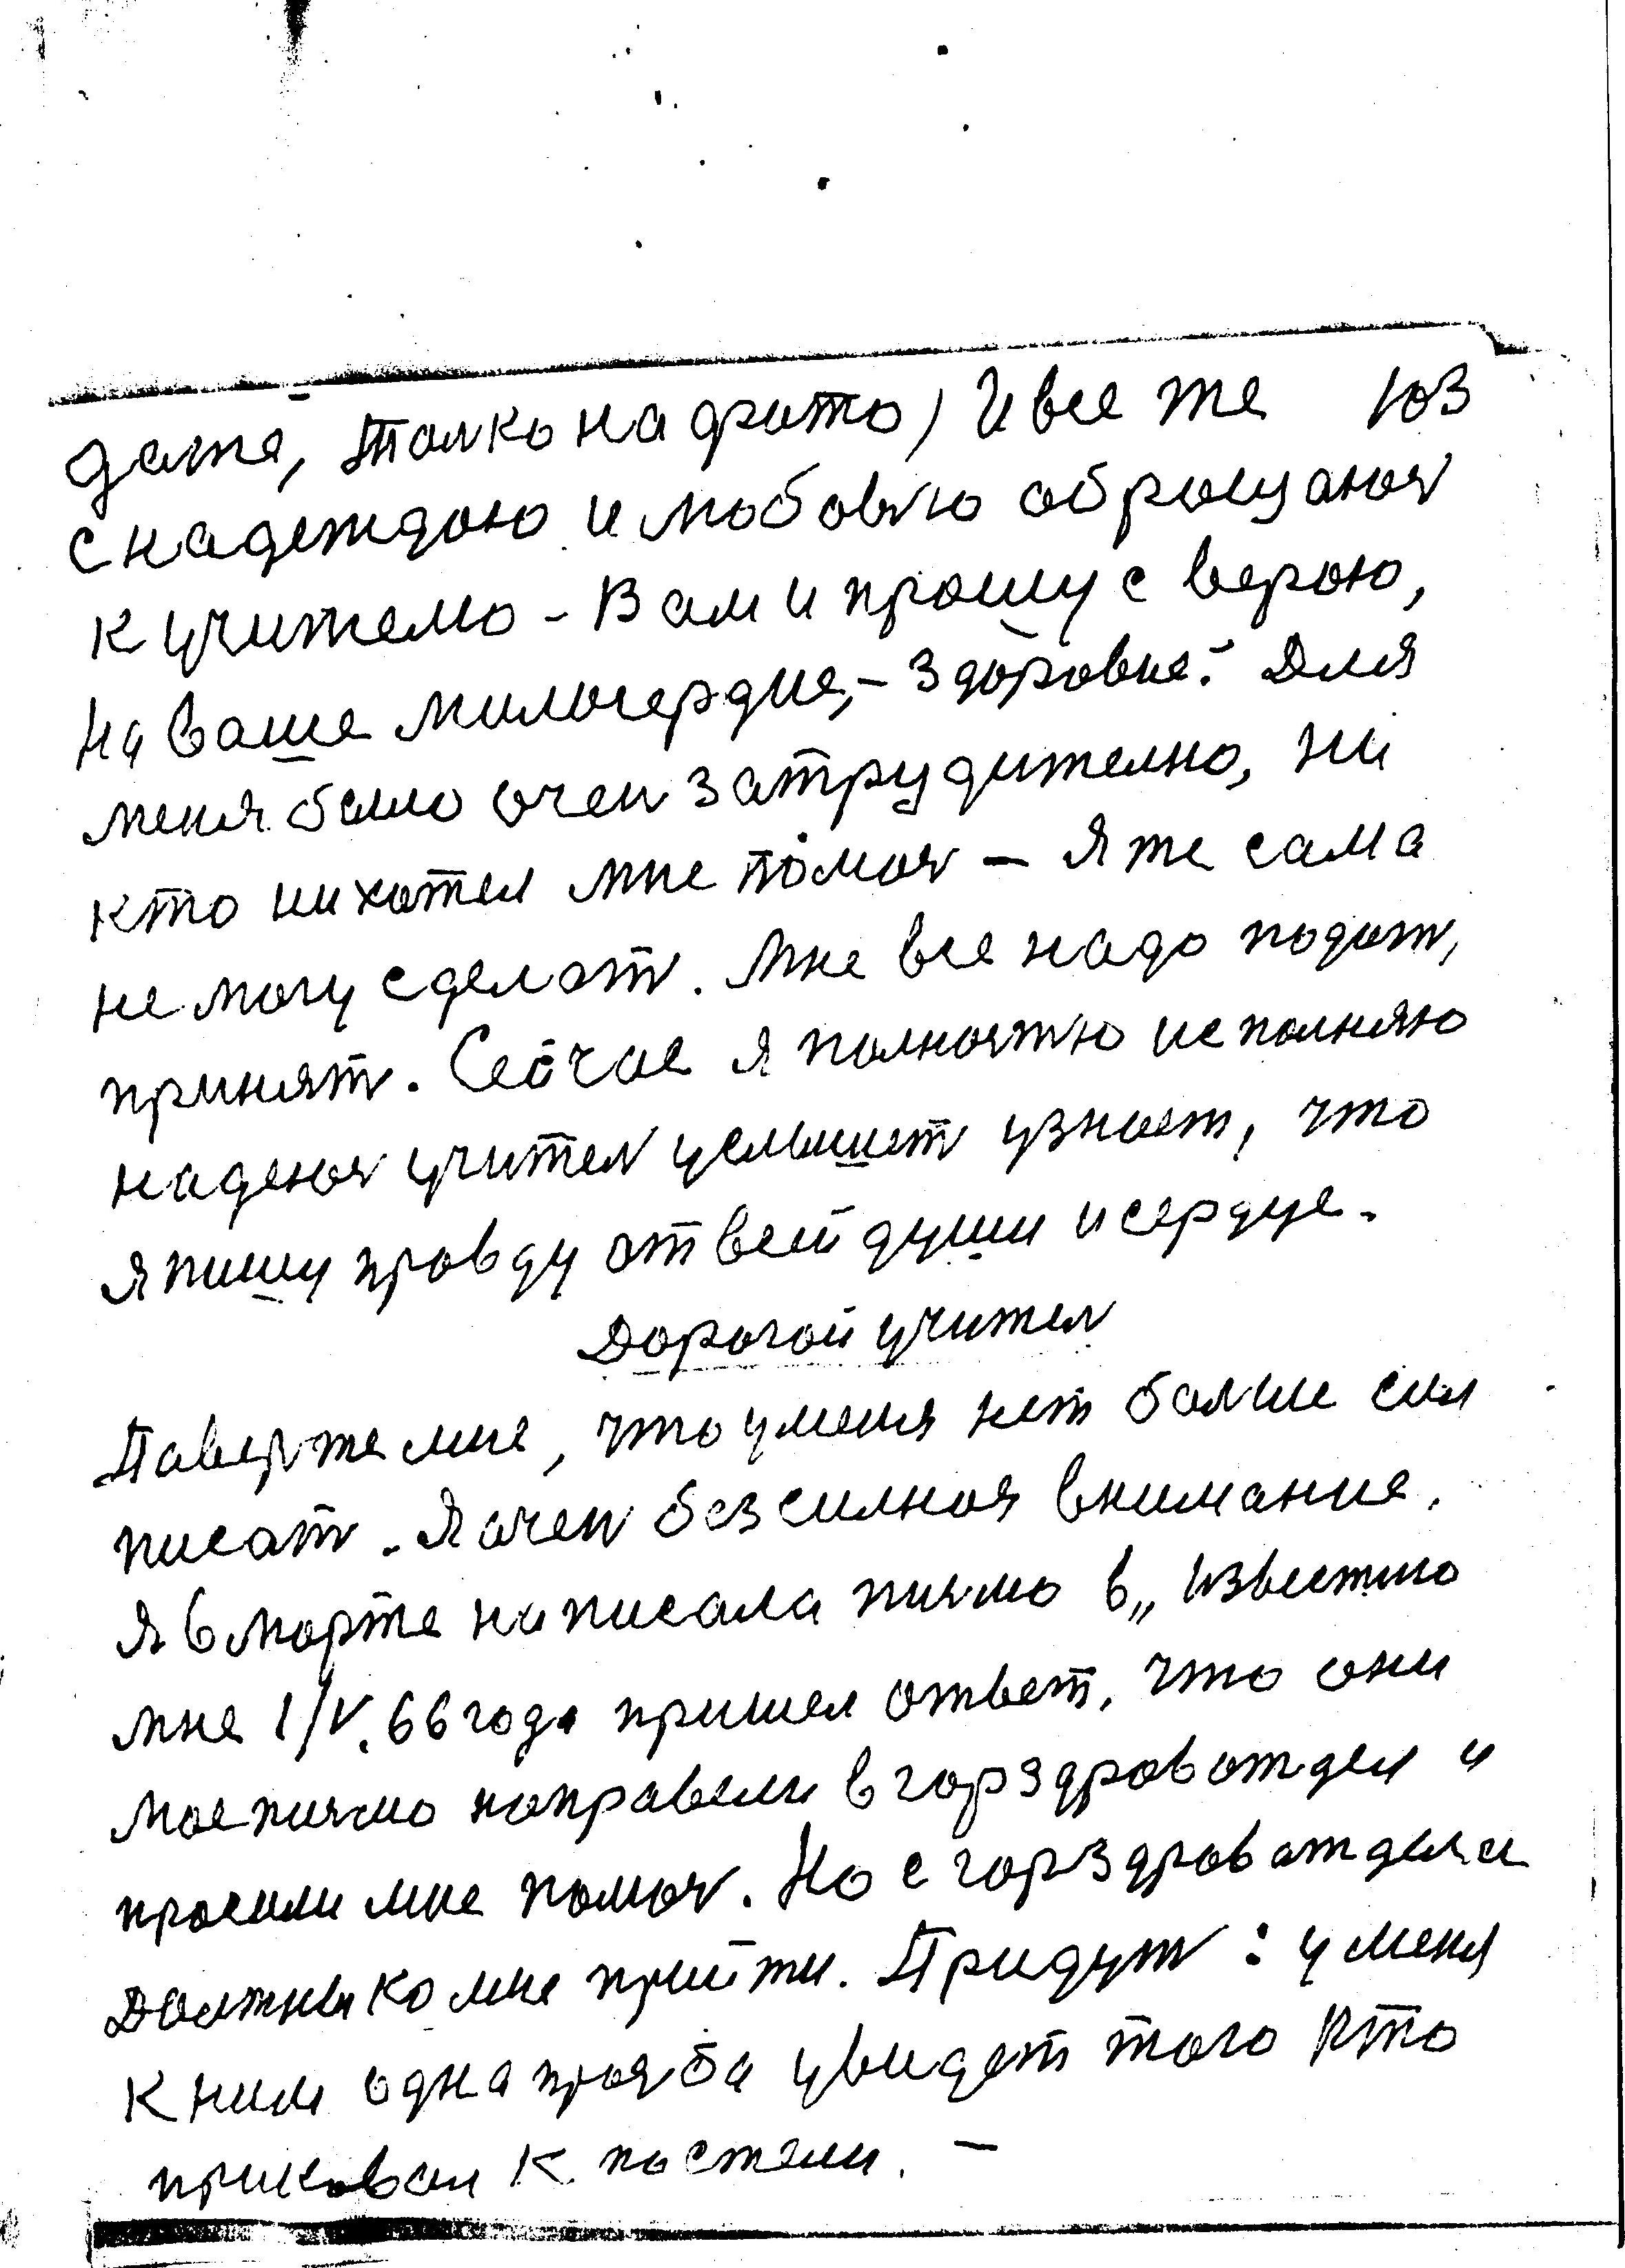 даже, толко на фото) И все же 103
с надеждою и любовю обращаюсь
к учителю - Вам и прошу с верою,
на ваше милосердие, - здоровие. Для
меня было очен затрудително, ни
кто ни хотел мне помоч - Я же сама
не могу сделат. Мне все надо подат,
принят. Сейчас я полностю исполняю
надеюсь учител услышет узнает, что
я пишу правду от всей души и сердце.
Дорогой учител
Поверте мне, что у меня нет болше сил
писат. Я очен безсилная внимание.
Я в марте написала писмо в „Известию
мне 1/V.66 года пришел ответ, что они
мое писмо направели в горздравотдел и
просили мне помоч. Но с горздравотдела
должны ко мне прийти. Придут: у меня
к ним одна прозба увидет того кто
прикован к постели. -